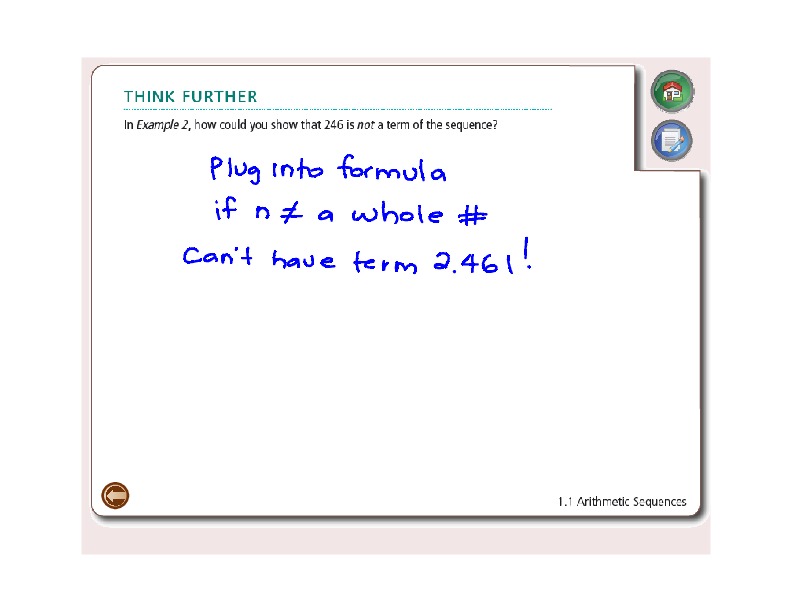 THINK FURTHER
In Example 2, how could you show that 246 is not a term of the sequence?
Plug into formula
if n ≠ a whole #
Can't have term 2.461!
1.1 Arithmetic Sequences